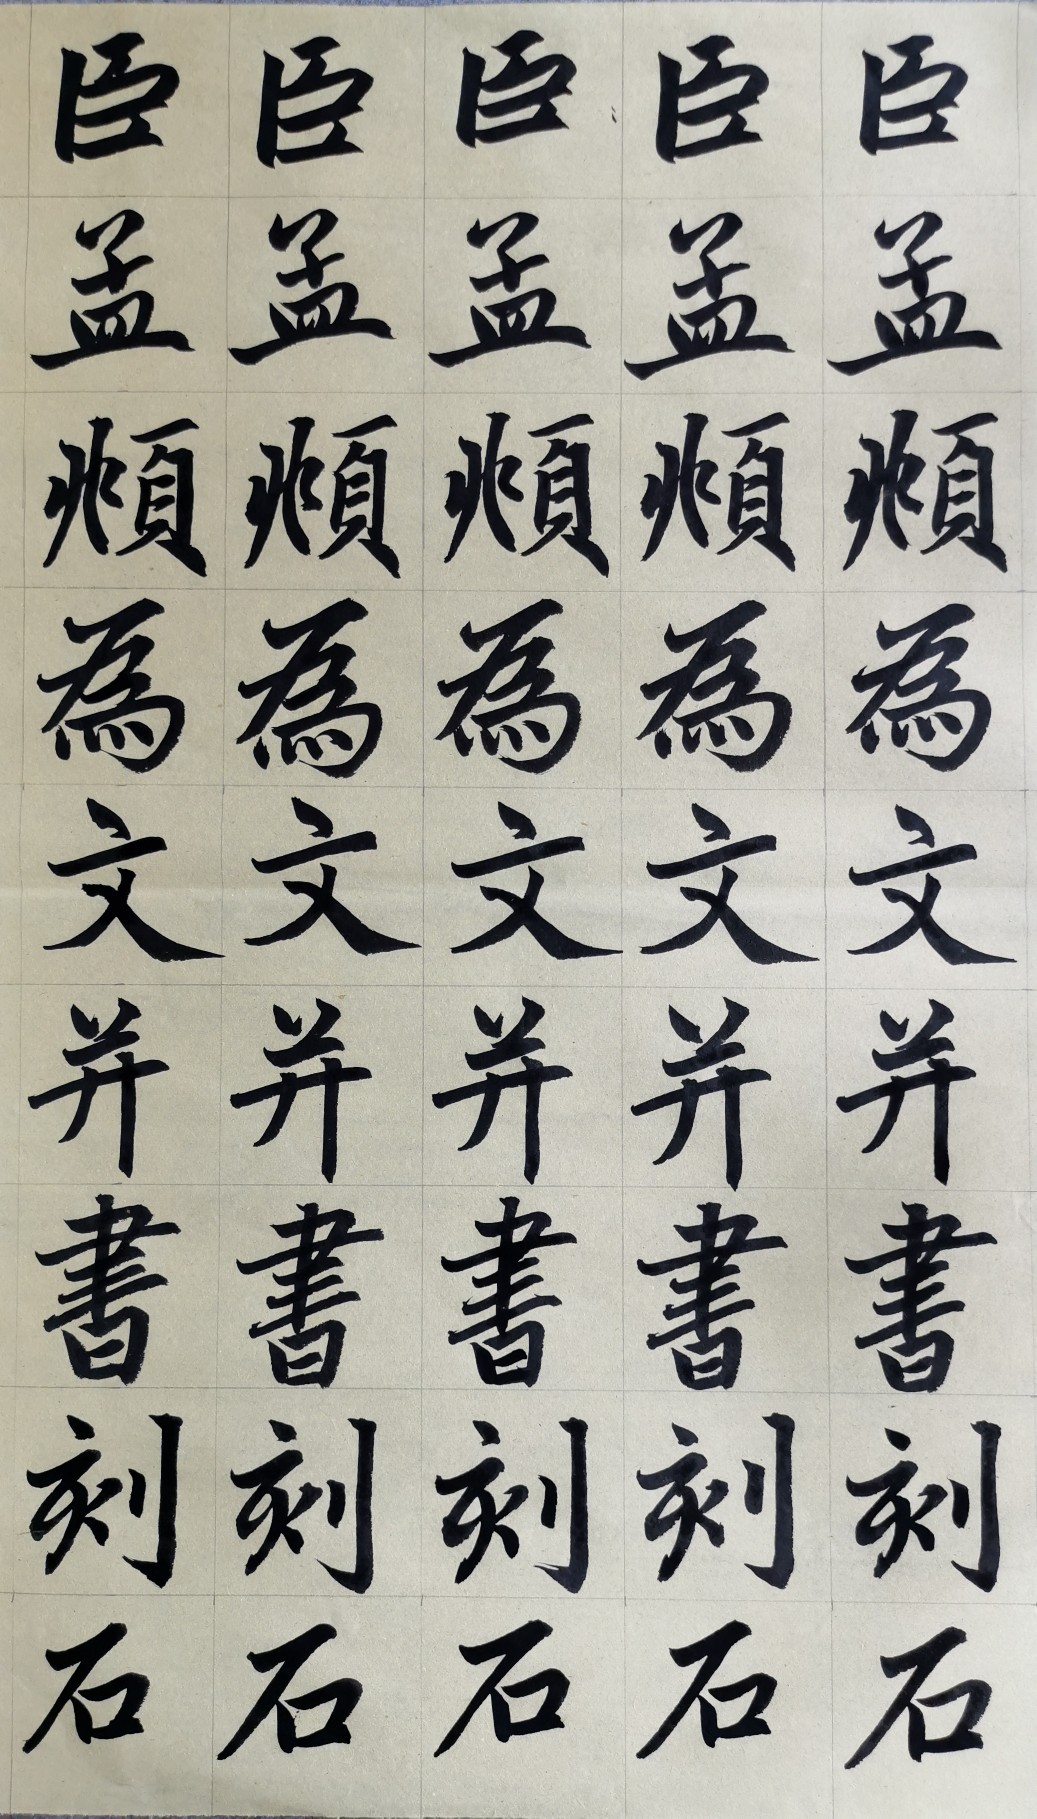 臣孟頫為文并書刻石
臣孟頫為文并書刻石
臣孟頫為文并書刻石
臣孟頫為文并書刻石
臣孟頫為文并書刻石